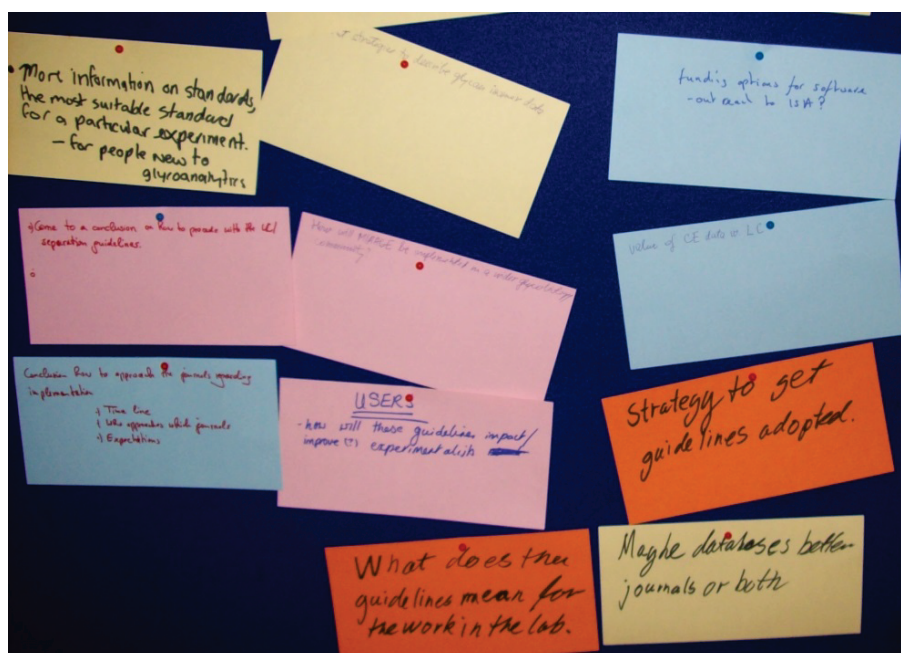 • More information on standards,
the most suitable standard
for a particular experiment.
- for people new to
glycoanalytics
strategies to describe glycan data
funding options for software
- outreach to ISA?
Come to a conclusion on how to procede with the LC/
separation guidelines.
How will MIRAGE be implemented in a wider glycobiology
community?
Value of CE data vs LC
Conclusion how to approach the journals regarding
implementation
Time line
Who approaches which journals
Expectations
USERS
- how will these guidelines impact/
improve (?) experimentalists
Strategy to get
guidelines adopted.
What does the
guidelines mean for
the work in the lab.
Maybe databases better
journals or both